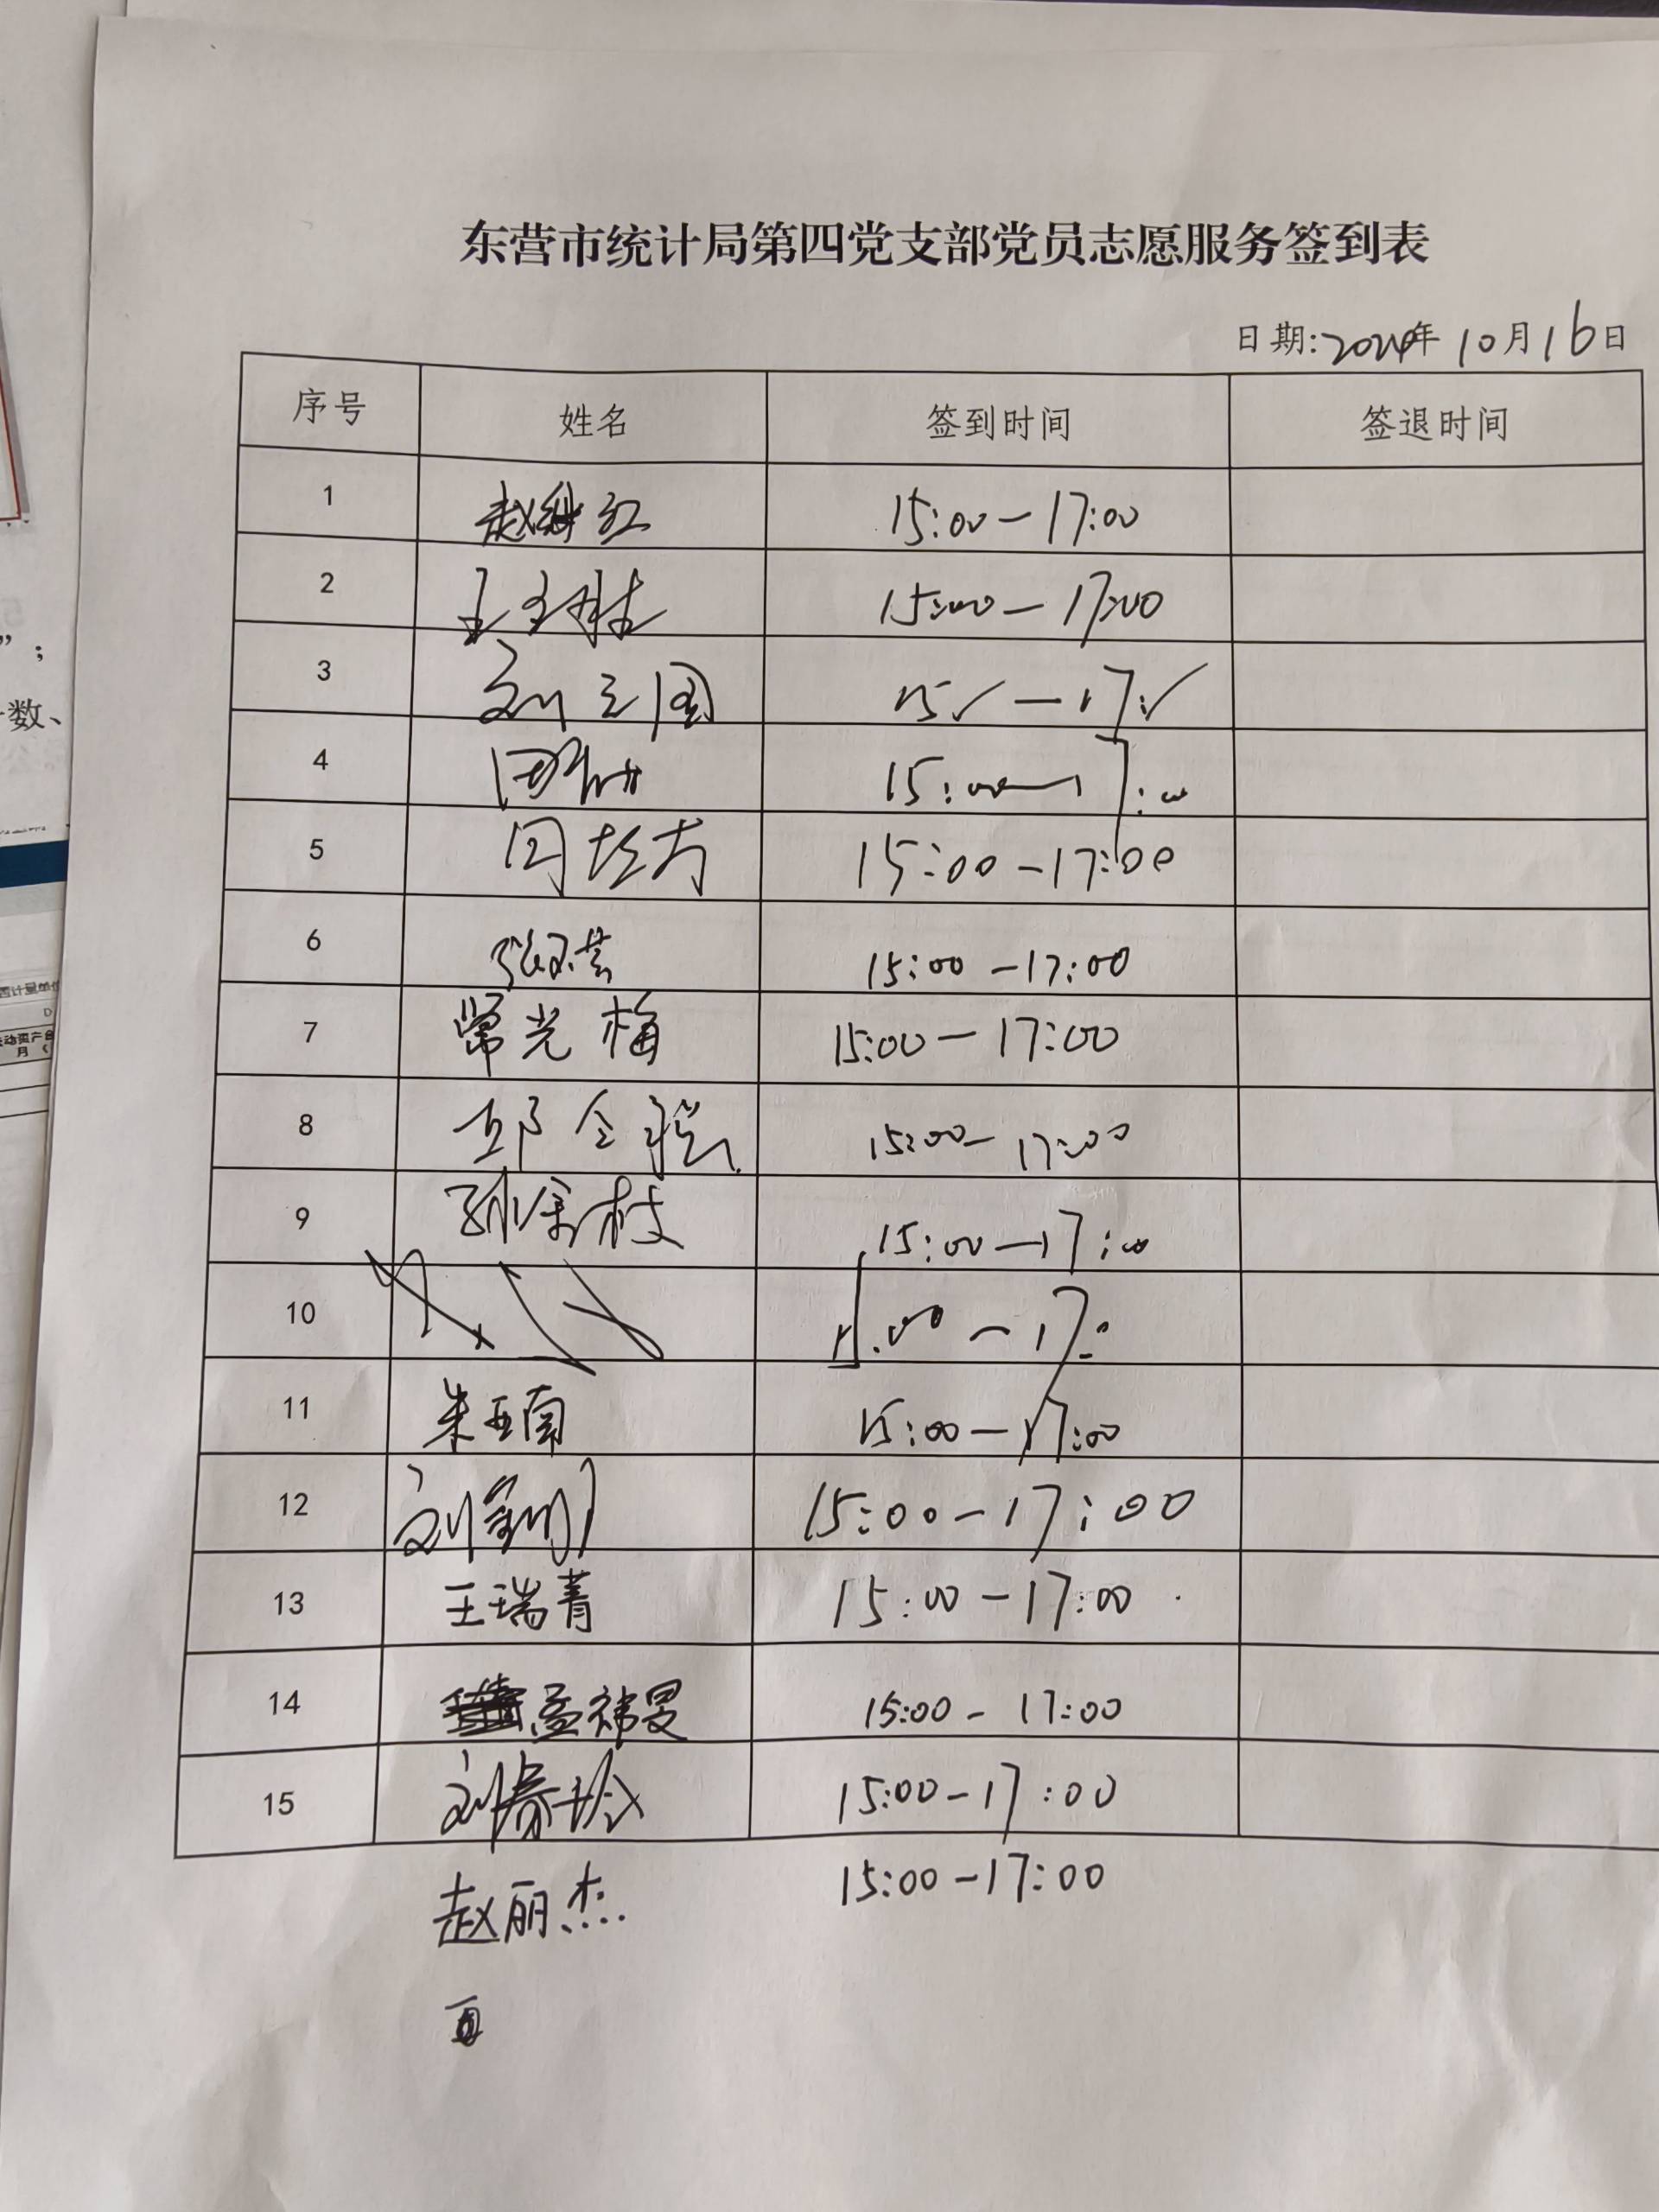 东营市统计局第四党支部党员志愿服务签到表
日期:2024年10月16日
序号 姓名 签到时间 签退时间
1 赵继红 15:00-17:00
2 15:00-17:00
3 刘立国 15 - 17
4 15:00-17:00
5 15:00-17:00
6 15:00-17:00
7 常光梅 15:00-17:00
8 邱全 15:00-17:00
9 孙金枝 15:00-17:00
10
11 朱亚南 15:00-17:00
12 刘 15:00-17:00
13 王瑞菁 15:00-17:00
14 孟祎旻 15:00-17:00
15 刘春玲 15:00-17:00
赵丽杰 15:00-17:00
”；
数、